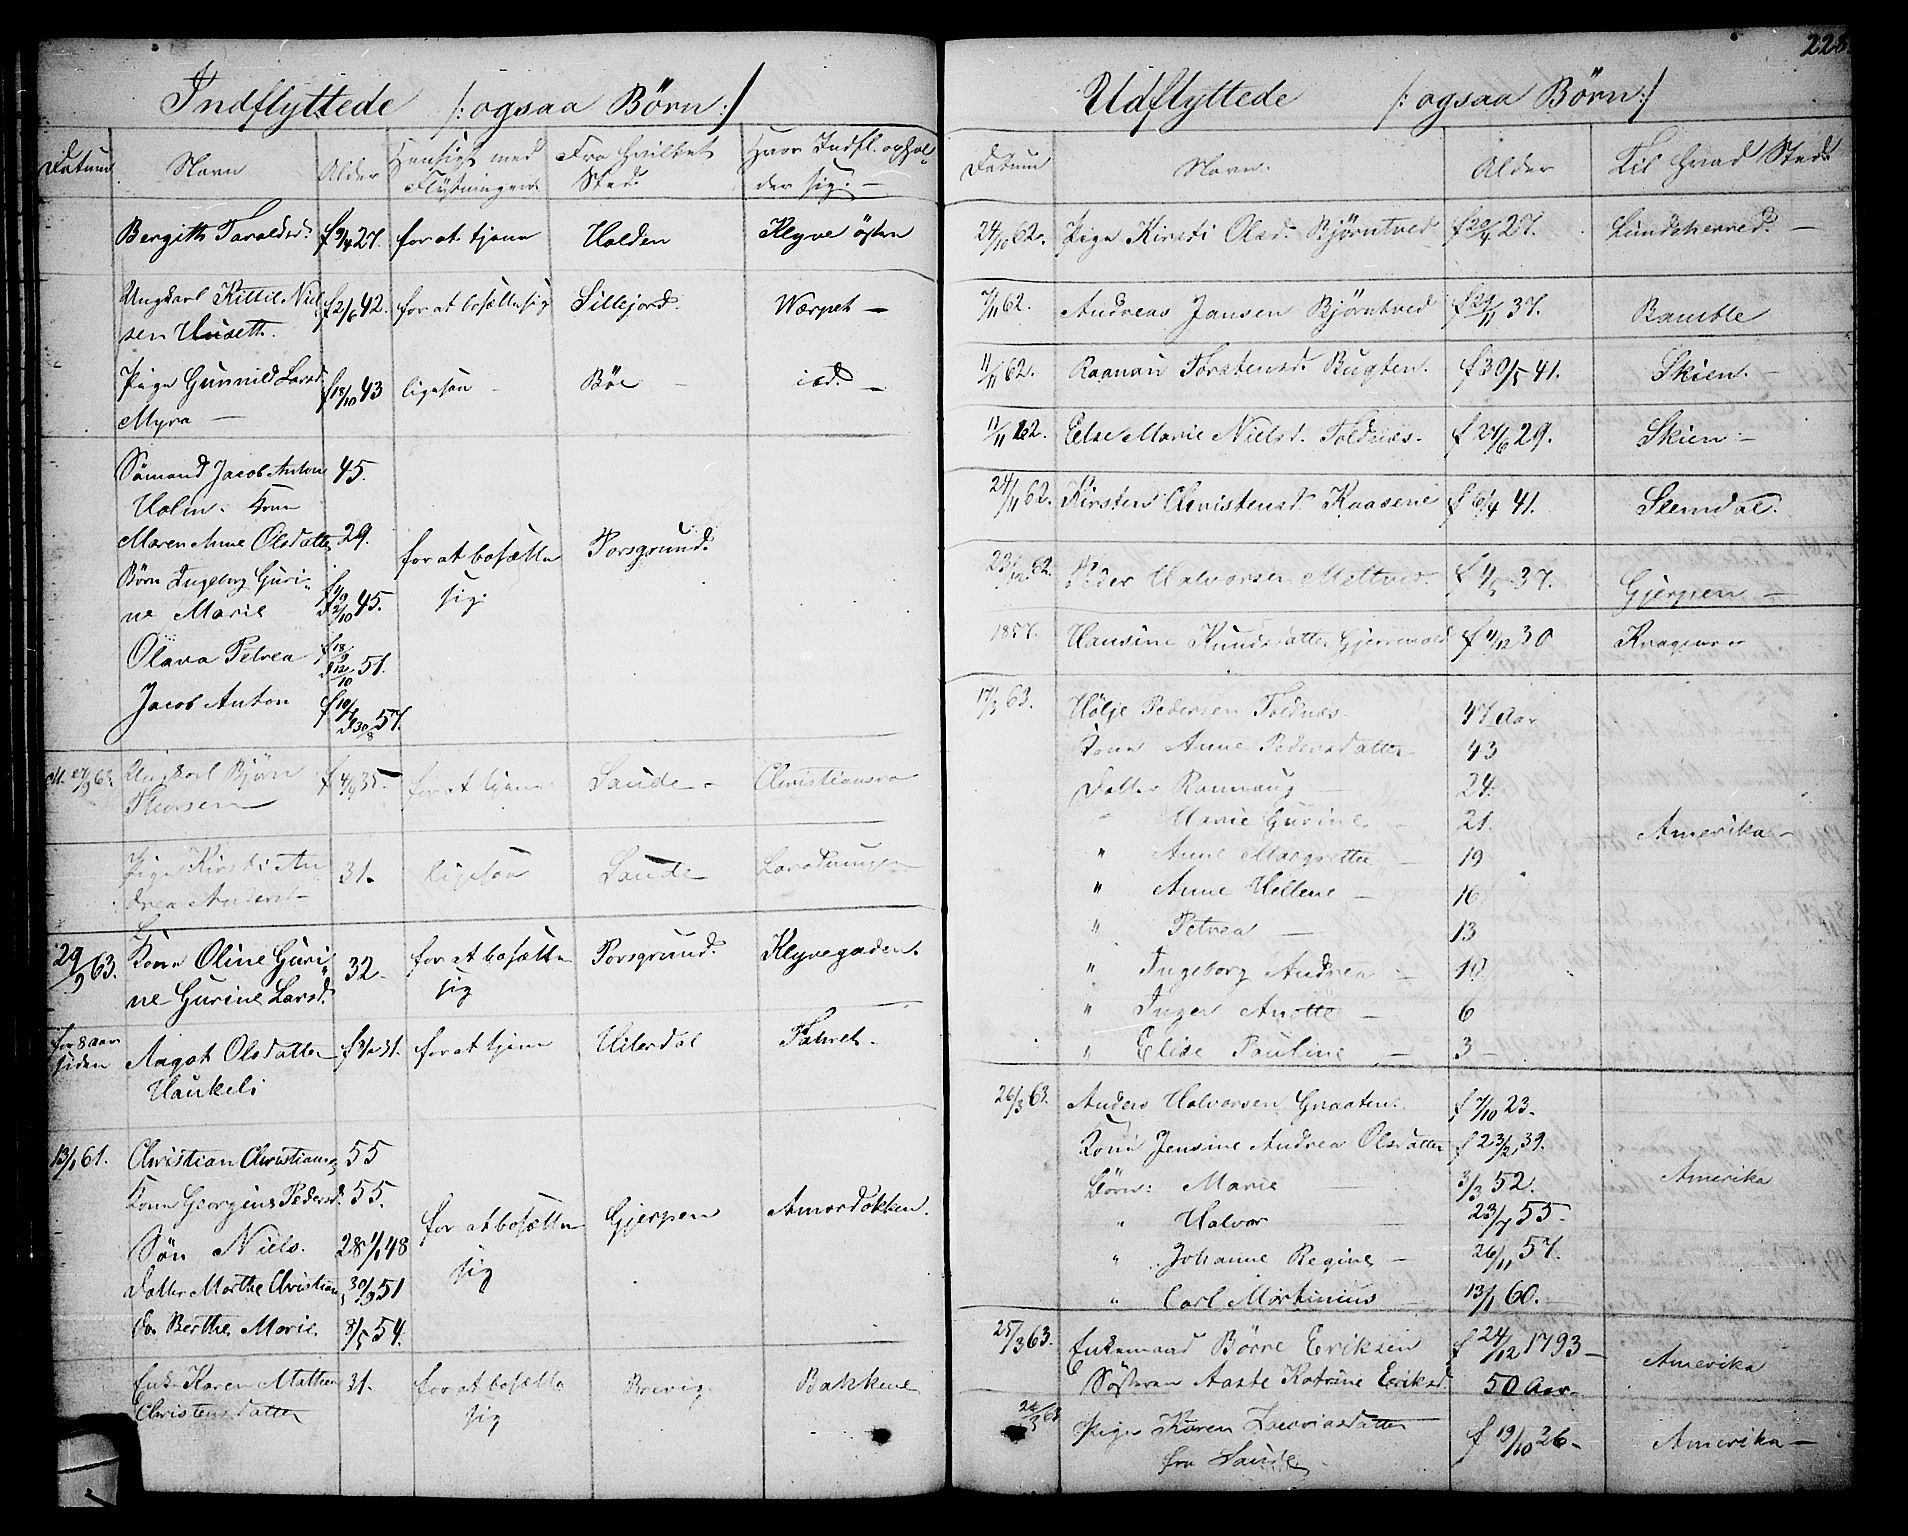 Indflyttede /: ogsaa Börn :/
Datum Navn Alder Hensigt med Flytningen Fra hvilket Sted. Hvor Indfl. ophol-
der sig. —
Bergith Taraldsd. f 9/4 27. for at tjene Holden Klyve östen
Ungkarl Kittil Niel- f 2/6 42. for at bosætte sig Sillejord. Værpet —
sen Huseth.
Pige Gunnild Larsd. f 18/10 43 ligesaa — Böe — id. —
Myra —
Sömand Jacob Anton 45.
Holm. Kone
Maren Anne Olsdatter 29. for at bosætte Porsgrund.
Börn Ingeborg Guri- sig.
ne Marie 45.
Olava Petrea 51.
Jacob Anton 57.
Ungkarl Björn f 4/4 35 for at tjene Saude — Christiansro
Thorsen
Pige Kirsti An- 31. ligesaa Saude
drea Andersd.
29/9 63. Kone Oline Guri- 32. for at bosætte Porsgrund. Klyvegaden.
ne Gurine Larsd. sig
for 8 aar Aagot Olsdatter for at tjene Hiterdal
siden Haukeli
13/1 61. Christian Christians. 55
Kone Georgine Pedersd. 55. for at bosætte Gjerpen
Sön Niels. 28/1 48 sig
Datter Marthe Christian 30/9 51
do Berthe Marie. 8/5 54.
Enke Karen Mathea 31. for at bosætte Brevig. Bakkene
Christensdatter sig
228.
Udflyttede /: ogsaa Börn :/
Datum Navn. Alder Til hvad Sted
24/10 62. Pige Kirsti Olsd. Björntved f 20/4 27. Lundeherred. —
7/11 62. Andreas Jansen Björntved f 29/11 37. Bamble
11/11 62. Torstensd. Bugten. f 30/5 41. Skien. —
11/11 62. Else Marie Nielsd. Toldnæs. f 24/6 29. Skien —
24/11 62. Kirsten Christensd. Kaasene f 6/4 41. Slemdal.
23/12 62. Peder Halvorsen 37. Gjerpen —
1857. Hansine Knudsdatter f 4/12 30 Kragerøe
17/3 63. Hölje Pedersen Toldnæs. 47 Aar
Kone Anne Pedersdatter 43
Datter Rannaug — 24.
" Marie Gurine — 21. Amerika —
" Anne Margrethe — 19
" Anne Hellene — 16
" Petrea — 13
" Ingeborg Andrea — 10.
" Inger Anette — 6
" Elise Pauline — 3 —
26/3 63. Anders Halvorsen Graaten. f 7/10 23.
Kone Jensine Andrea Olsdatter f 23/2 39.
Börn: Marie — 3/3 52. Amerika
" Halvor — 23/7 55.
" Johanne Regine — 26/11 57.
" Carl Martinius — 13/1 60.
25/3 63. Enkemand Börre Eriksen f 24/12 1793 — Amerika
Sösteren Aaste Katrine Eriksd. 50 Aar.
Pige Karen f 19/10 26 — Amerika —
fra Saude